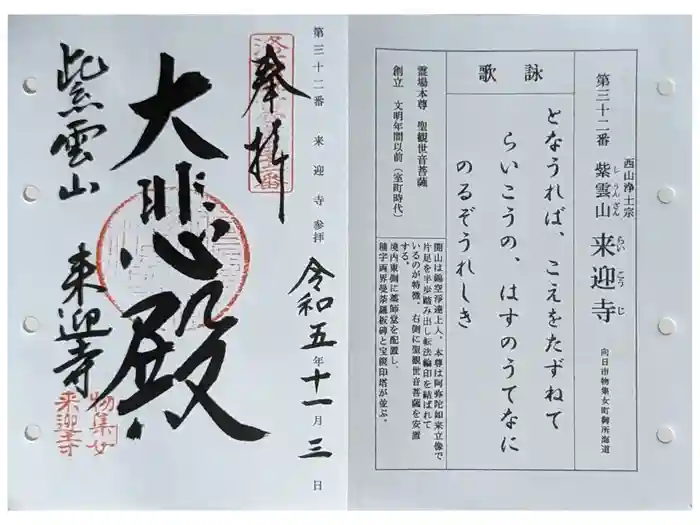 第三十二番
西山浄土宗
紫雲山 来迎寺
し うんざん らい こう じ
向日市物集女町御所海道
詠歌
となうれば、こえをたずねて
らいこうの、はすのうてなに
のるぞうれしき
霊場本尊 聖観世音菩薩
創立 文明年間以前(室町時代)
開山は錫空淨達上人、本尊は阿弥陀如来立像で
片足を半歩踏み出し転法輪印を結ばれて
いるのが特徴。右側に聖観世音菩薩を安置
する。
境内東側に薬師堂を配置し、
種字両界曼荼羅板碑と宝篋印塔が並ぶ。
第三十二番 来迎寺参拝
奉拝
令和五年十一月三日
大悲殿
紫雲山
来迎寺
物集女
来迎寺